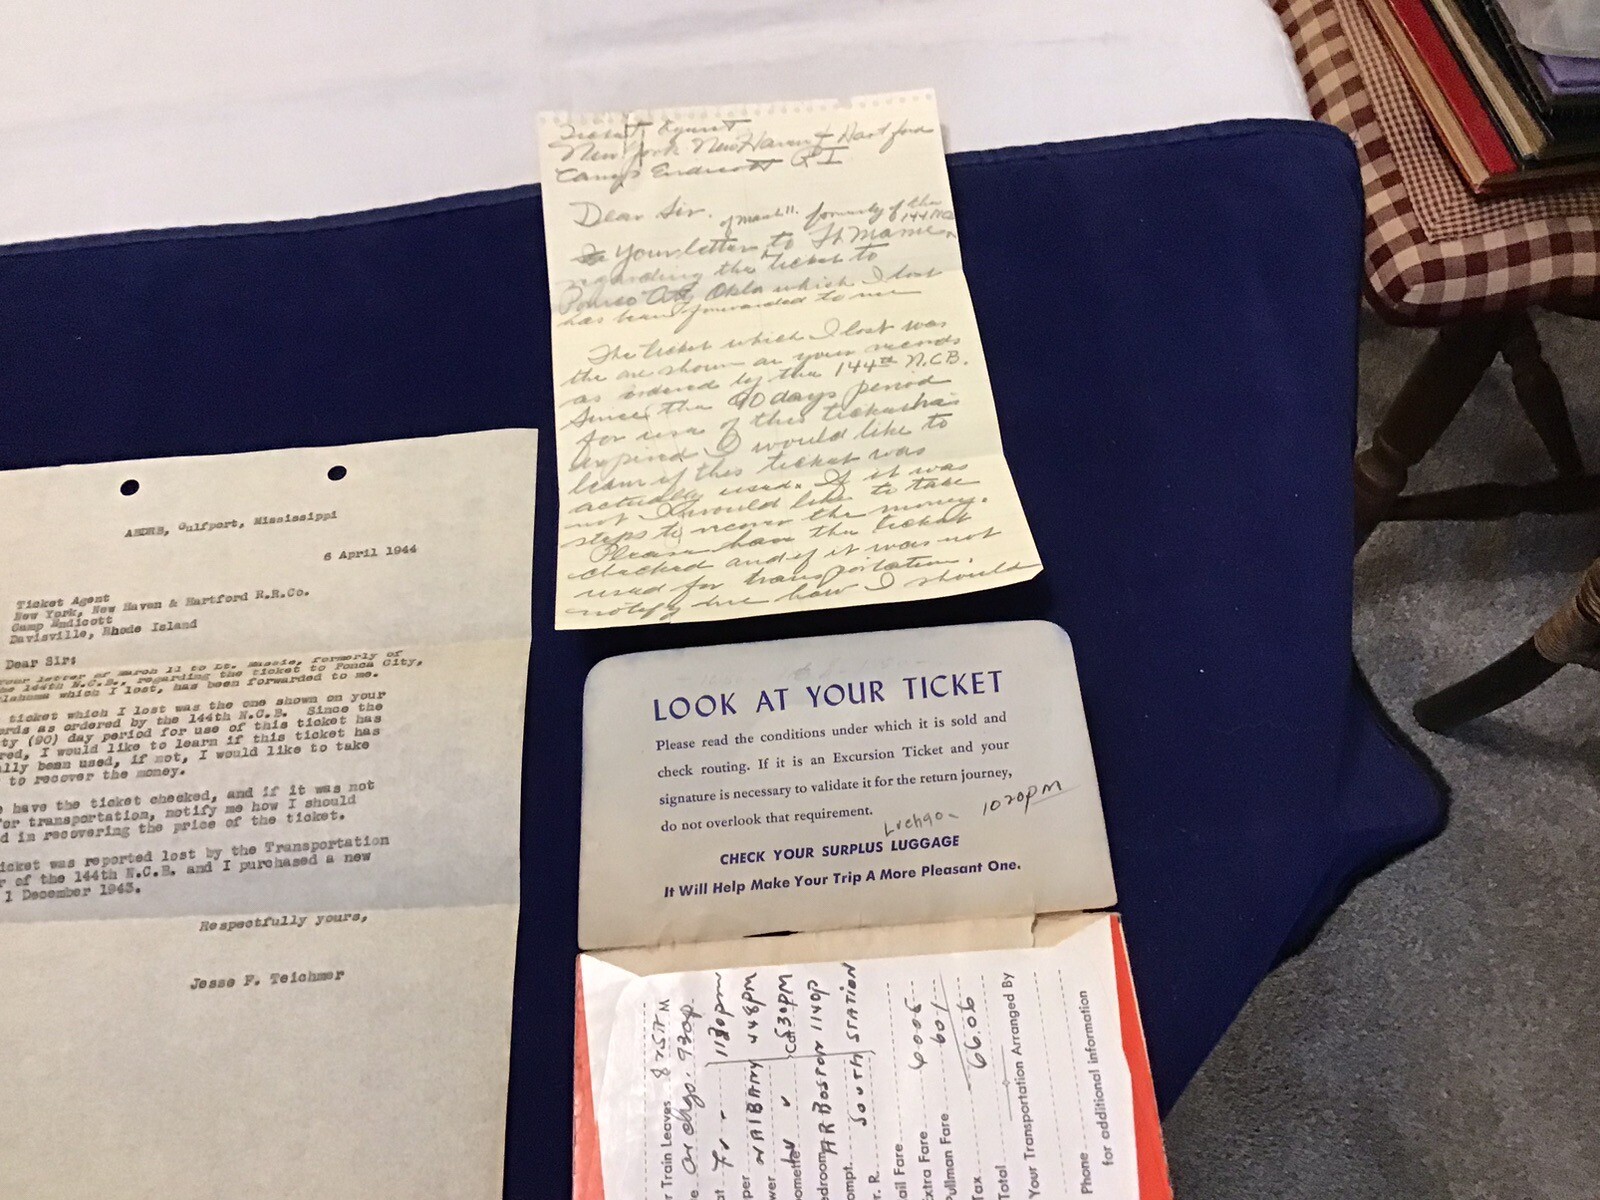 Ticket Agent
New York New Haven & Hartford
Camp Endicott R I
Dear Sir.
of March 11. formerly of the 144 NCB
Your letter to Lt Massie
regarding the ticket to
Ponca City Okla which I lost
has been forwarded to me
The ticket which I lost was
the one shown on your records
as ordered by the 144th N.C.B.
Since the 90 days period
for use of this ticket has
expired I would like to
learn if this ticket was
actually used. If it was
not I would like to take
steps to recover the money.
Please have the ticket
checked and if it was not
used for transportation.
notify me how I should
Gulfport, Mississippi
6 April 1944
Ticket Agent
New York, New Haven & Hartford R.R.Co.
Camp Endicott
Davisville, Rhode Island
Dear Sir:
letter of March 11 to Lt. Massie, formerly of
144th N.C.B., regarding the ticket to Ponca City,
which I lost, has been forwarded to me.
ticket which I lost was the one shown on your
as ordered by the 144th N.C.B. Since the
(90) day period for use of this ticket has
I would like to learn if this ticket has
been used, if not, I would like to take
to recover the money.
have the ticket checked, and if it was not
for transportation, notify me how I should
in recovering the price of the ticket.
ticket was reported lost by the Transportation
of the 144th N.C.B. and I purchased a new
1 December 1943.
Respectfully yours,
Jesse F. Teichmer
LOOK AT YOUR TICKET
Please read the conditions under which it is sold and
check routing. If it is an Excursion Ticket and your
signature is necessary to validate it for the return journey,
do not overlook that requirement.
Lv chgo - 1020PM
CHECK YOUR SURPLUS LUGGAGE
It Will Help Make Your Trip A More Pleasant One.
Train Leaves M
ar chgo. 930p.
1130pm
AlBANY 448pm
Lv Car 530PM
AR BOSTON 1140P
SOUTH STATION
Fare
Extra Fare 6005
Pullman Fare 601
Tax 66.06
Total
Your Transportation Arranged By
Phone
for additional information